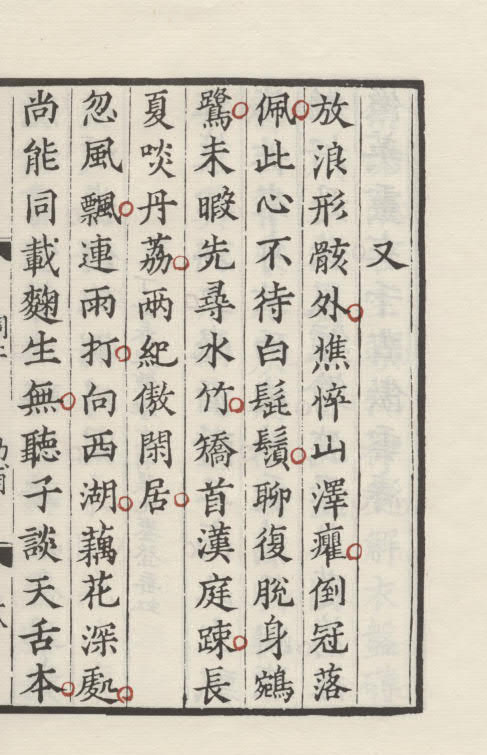 又
放浪形骸外憔悴山澤癯倒冠落
佩此心不待白髭鬚聊復脫身鵷
鷺未暇先尋水竹矯首漢庭踈長
夏啖丹荔兩紀傲閑居
忽風飄連雨打向西湖藕花深處
尚能同載麴生無聽子談天舌本